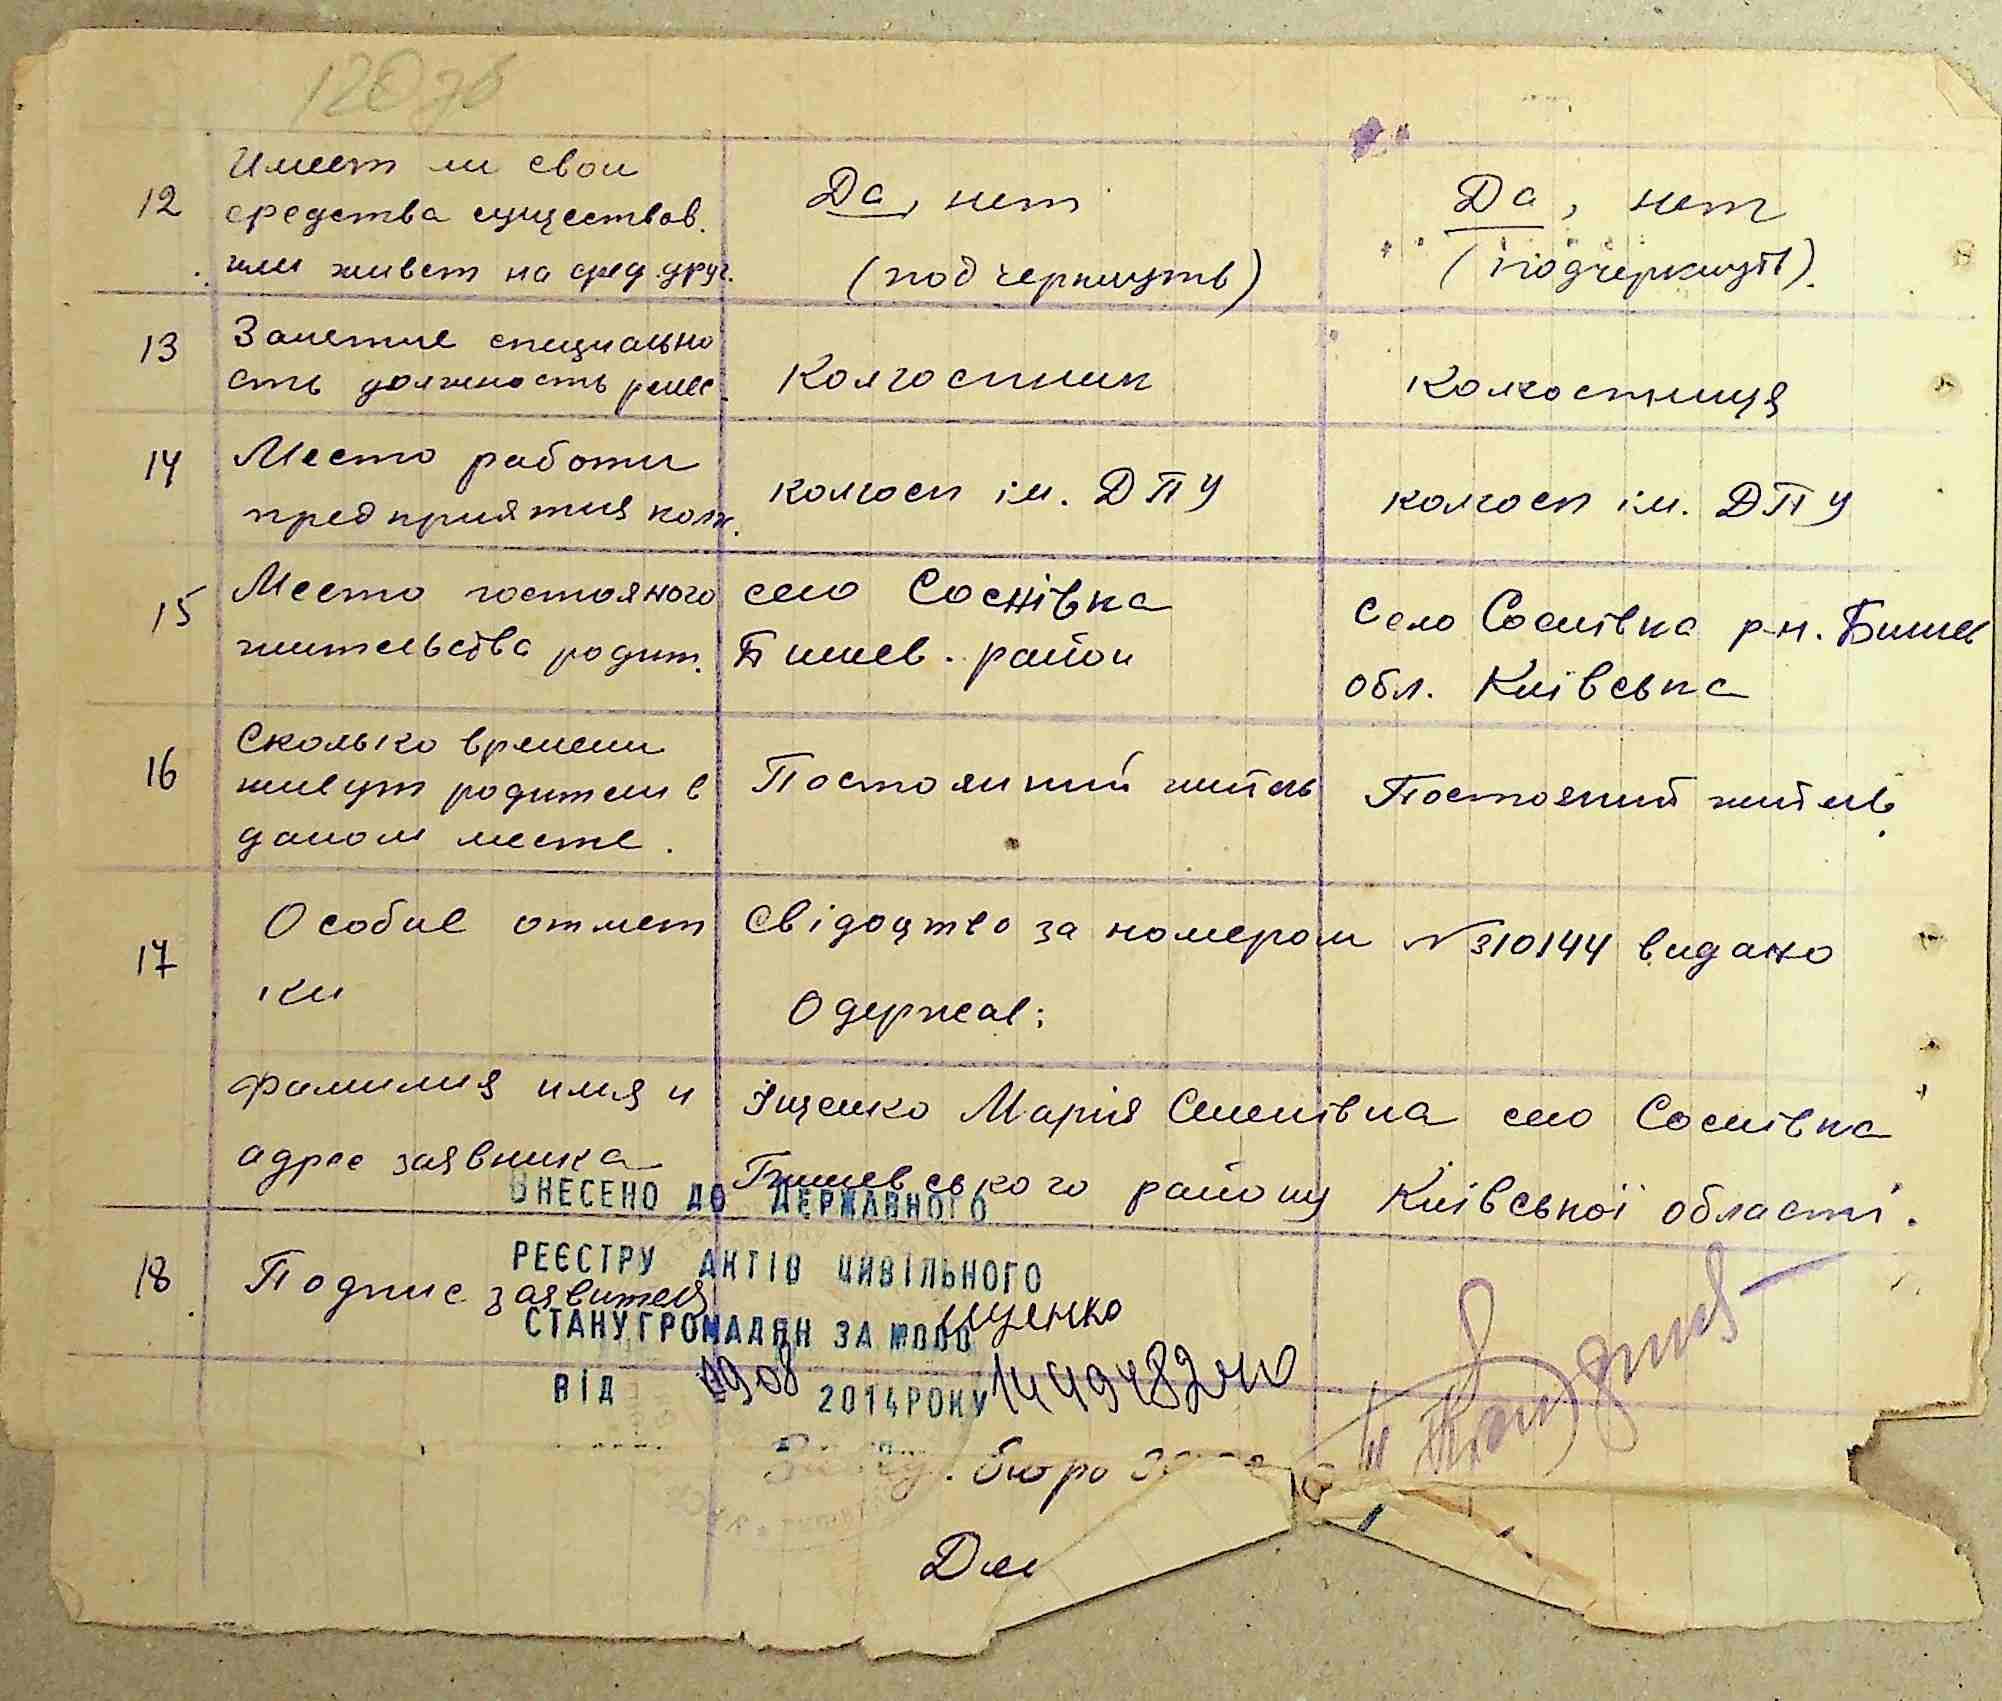 120 зв
Имеет ли свои
12 средства существов. Да, нет Да, нет
или живет на сред. друг. (подчеркнуть) (подчеркнуть).
Занетие специально
13 сть должность ремес. Колгоспник Колгоспниця
14 Место работи
предприятия колх. колгосп ім. ДПУ колгосп ім. ДПУ
15 Место постояного село Соснівка Село Соснівка р-н. Бишев
жительства родит. Бишев. район обл. Київська
Сколько времени
16 живут родители в Постоянний житель Постояний житель.
даном месте.
17 Особие отмет Свідоцтво за номером №310144 видано
ки Одержав:
фамилия имя и Іщенко Марія Семенівна село Соснівка
адрес заявника Бишевського району Київської області.
ВНЕСЕНО ДО ДЕРЖАВНОГО
РЕЄСТРУ АКТІВ ЦИВІЛЬНОГО
18 Подпис заявителя Іщенко
СТАНУ ГРОМАДЯН ЗА №000
ВІД 19 08 2014 РОКУ
бюро